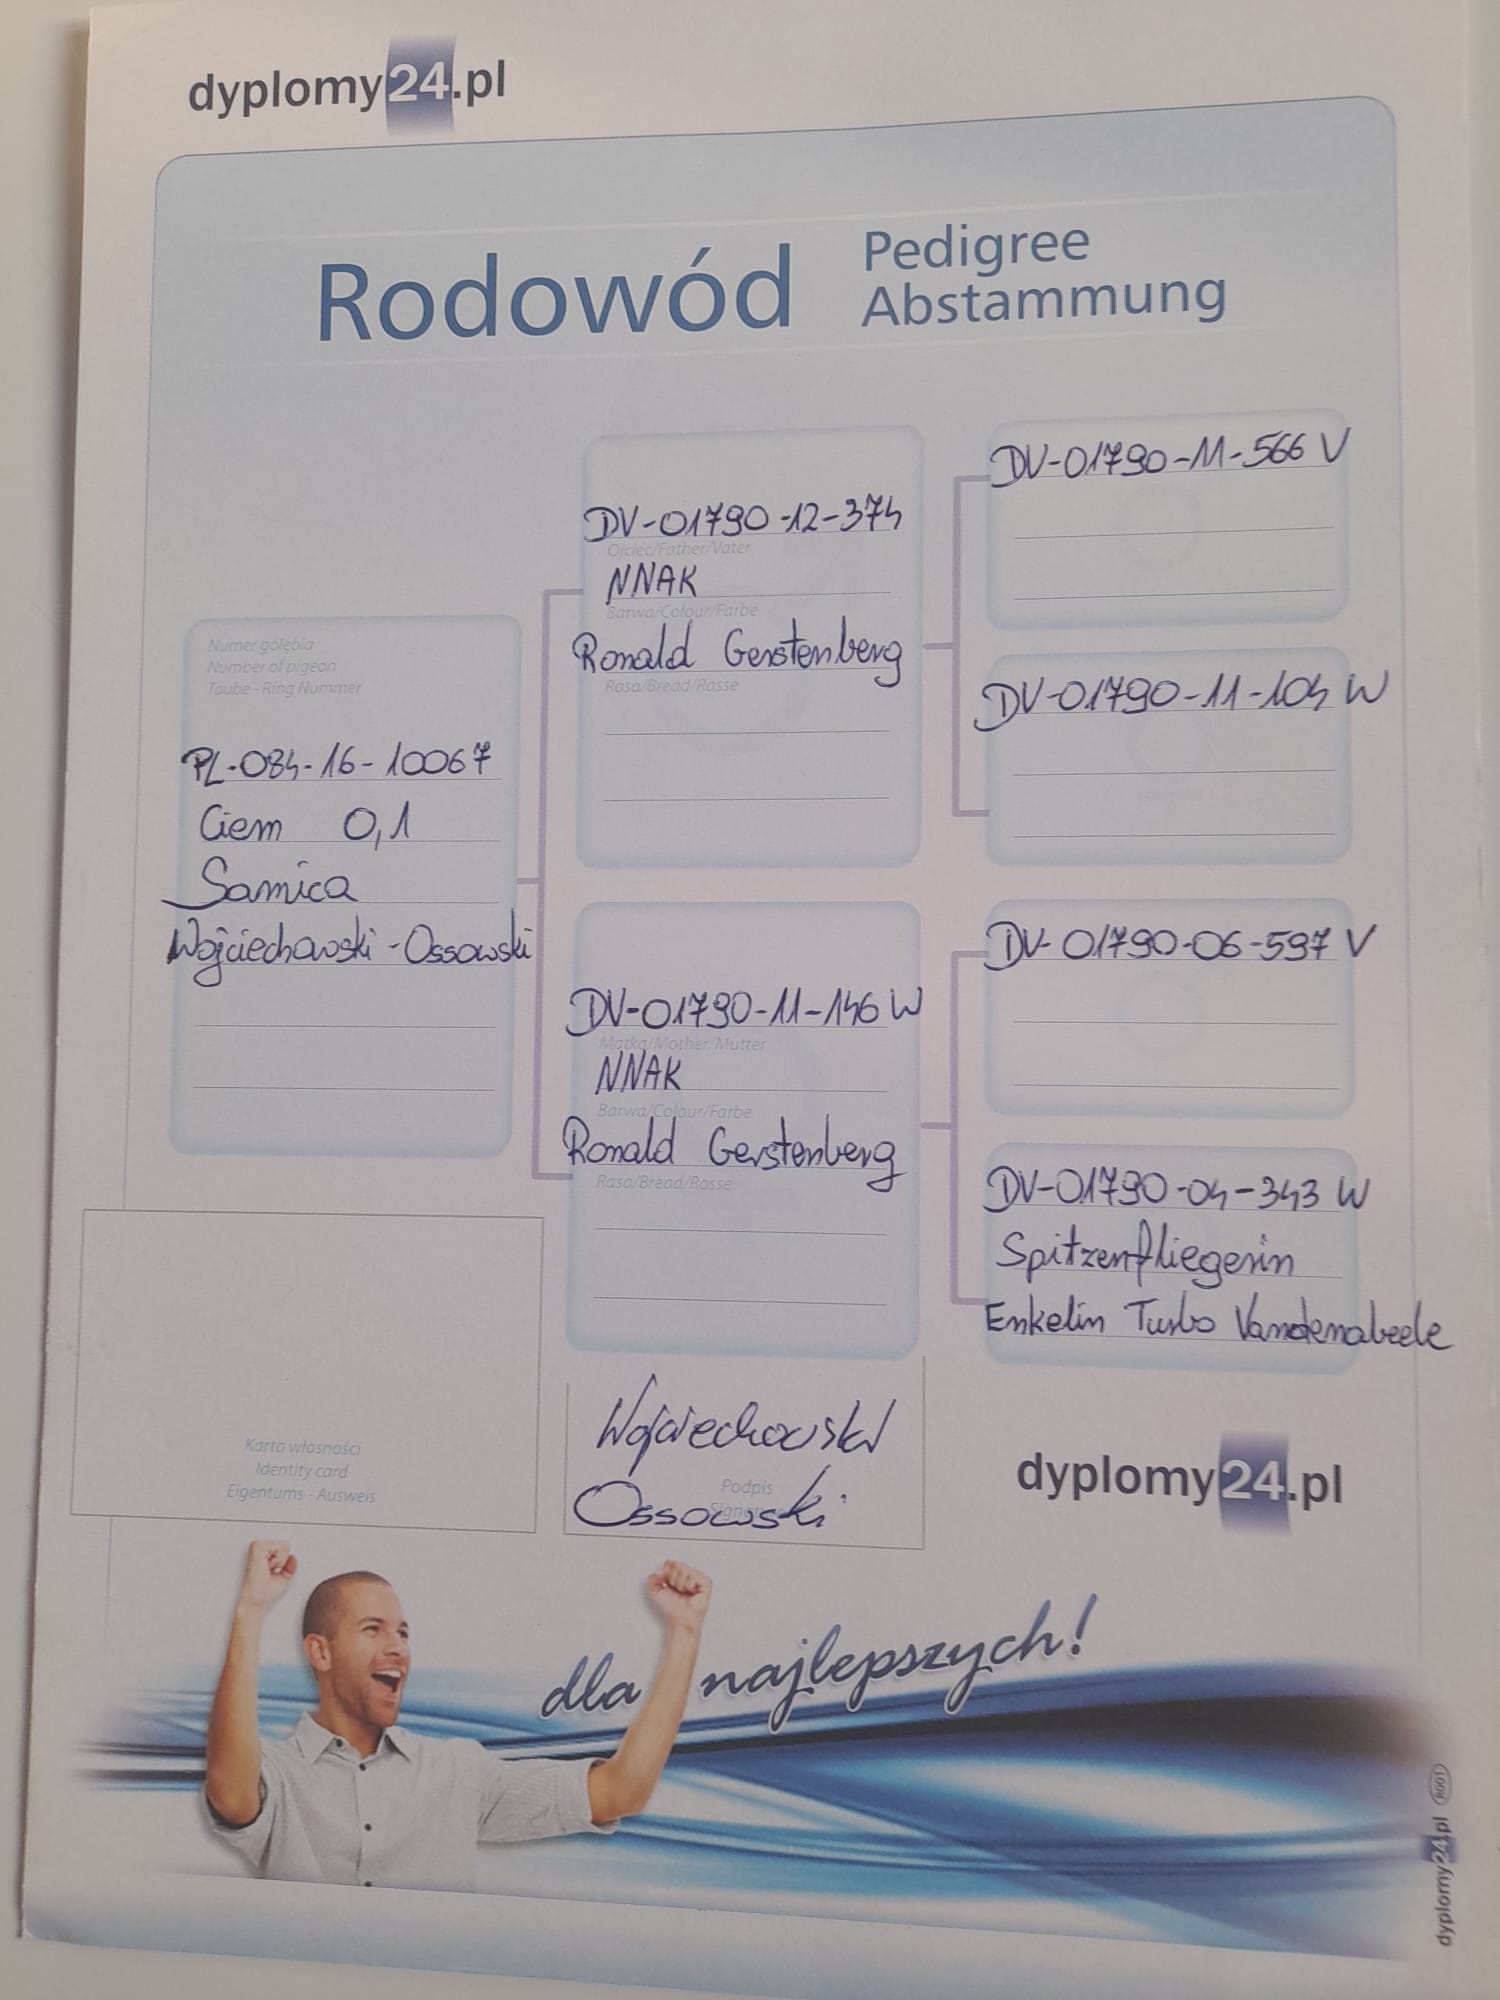 dyplomy24.pl
Rodowód
Pedigree
Abstammung
Numer gołębia
Number of pigeon
Taube - Ring Nummer
PL-084-16-10067
Ciem 0,1
Samica
Wojciechowski-Ossowski
DV-01790-12-374
Ojciec/Father/Vater
NNAK
Barwa/Colour/Farbe
Ronald Gerstenberg
Rasa/Bread/Rasse
DV-01790-11-146 W
Matka/Mother/Mutter
NNAK
Barwa/Colour/Farbe
Ronald Gerstenberg
Rasa/Bread/Rasse
DV-01790-11-566 V
DV-01790-11-104 W
DV-01790-06-597 V
DV-01790-04-343 W
Spitzenfliegerin
Enkelin Turbo Vandenabeele
Karta własności
Identity card
Eigentums - Ausweis
Wojciechowski
Podpis
Signature
Ossowski
dyplomy24.pl
dla najlepszych!
dyplomy24.pl R001